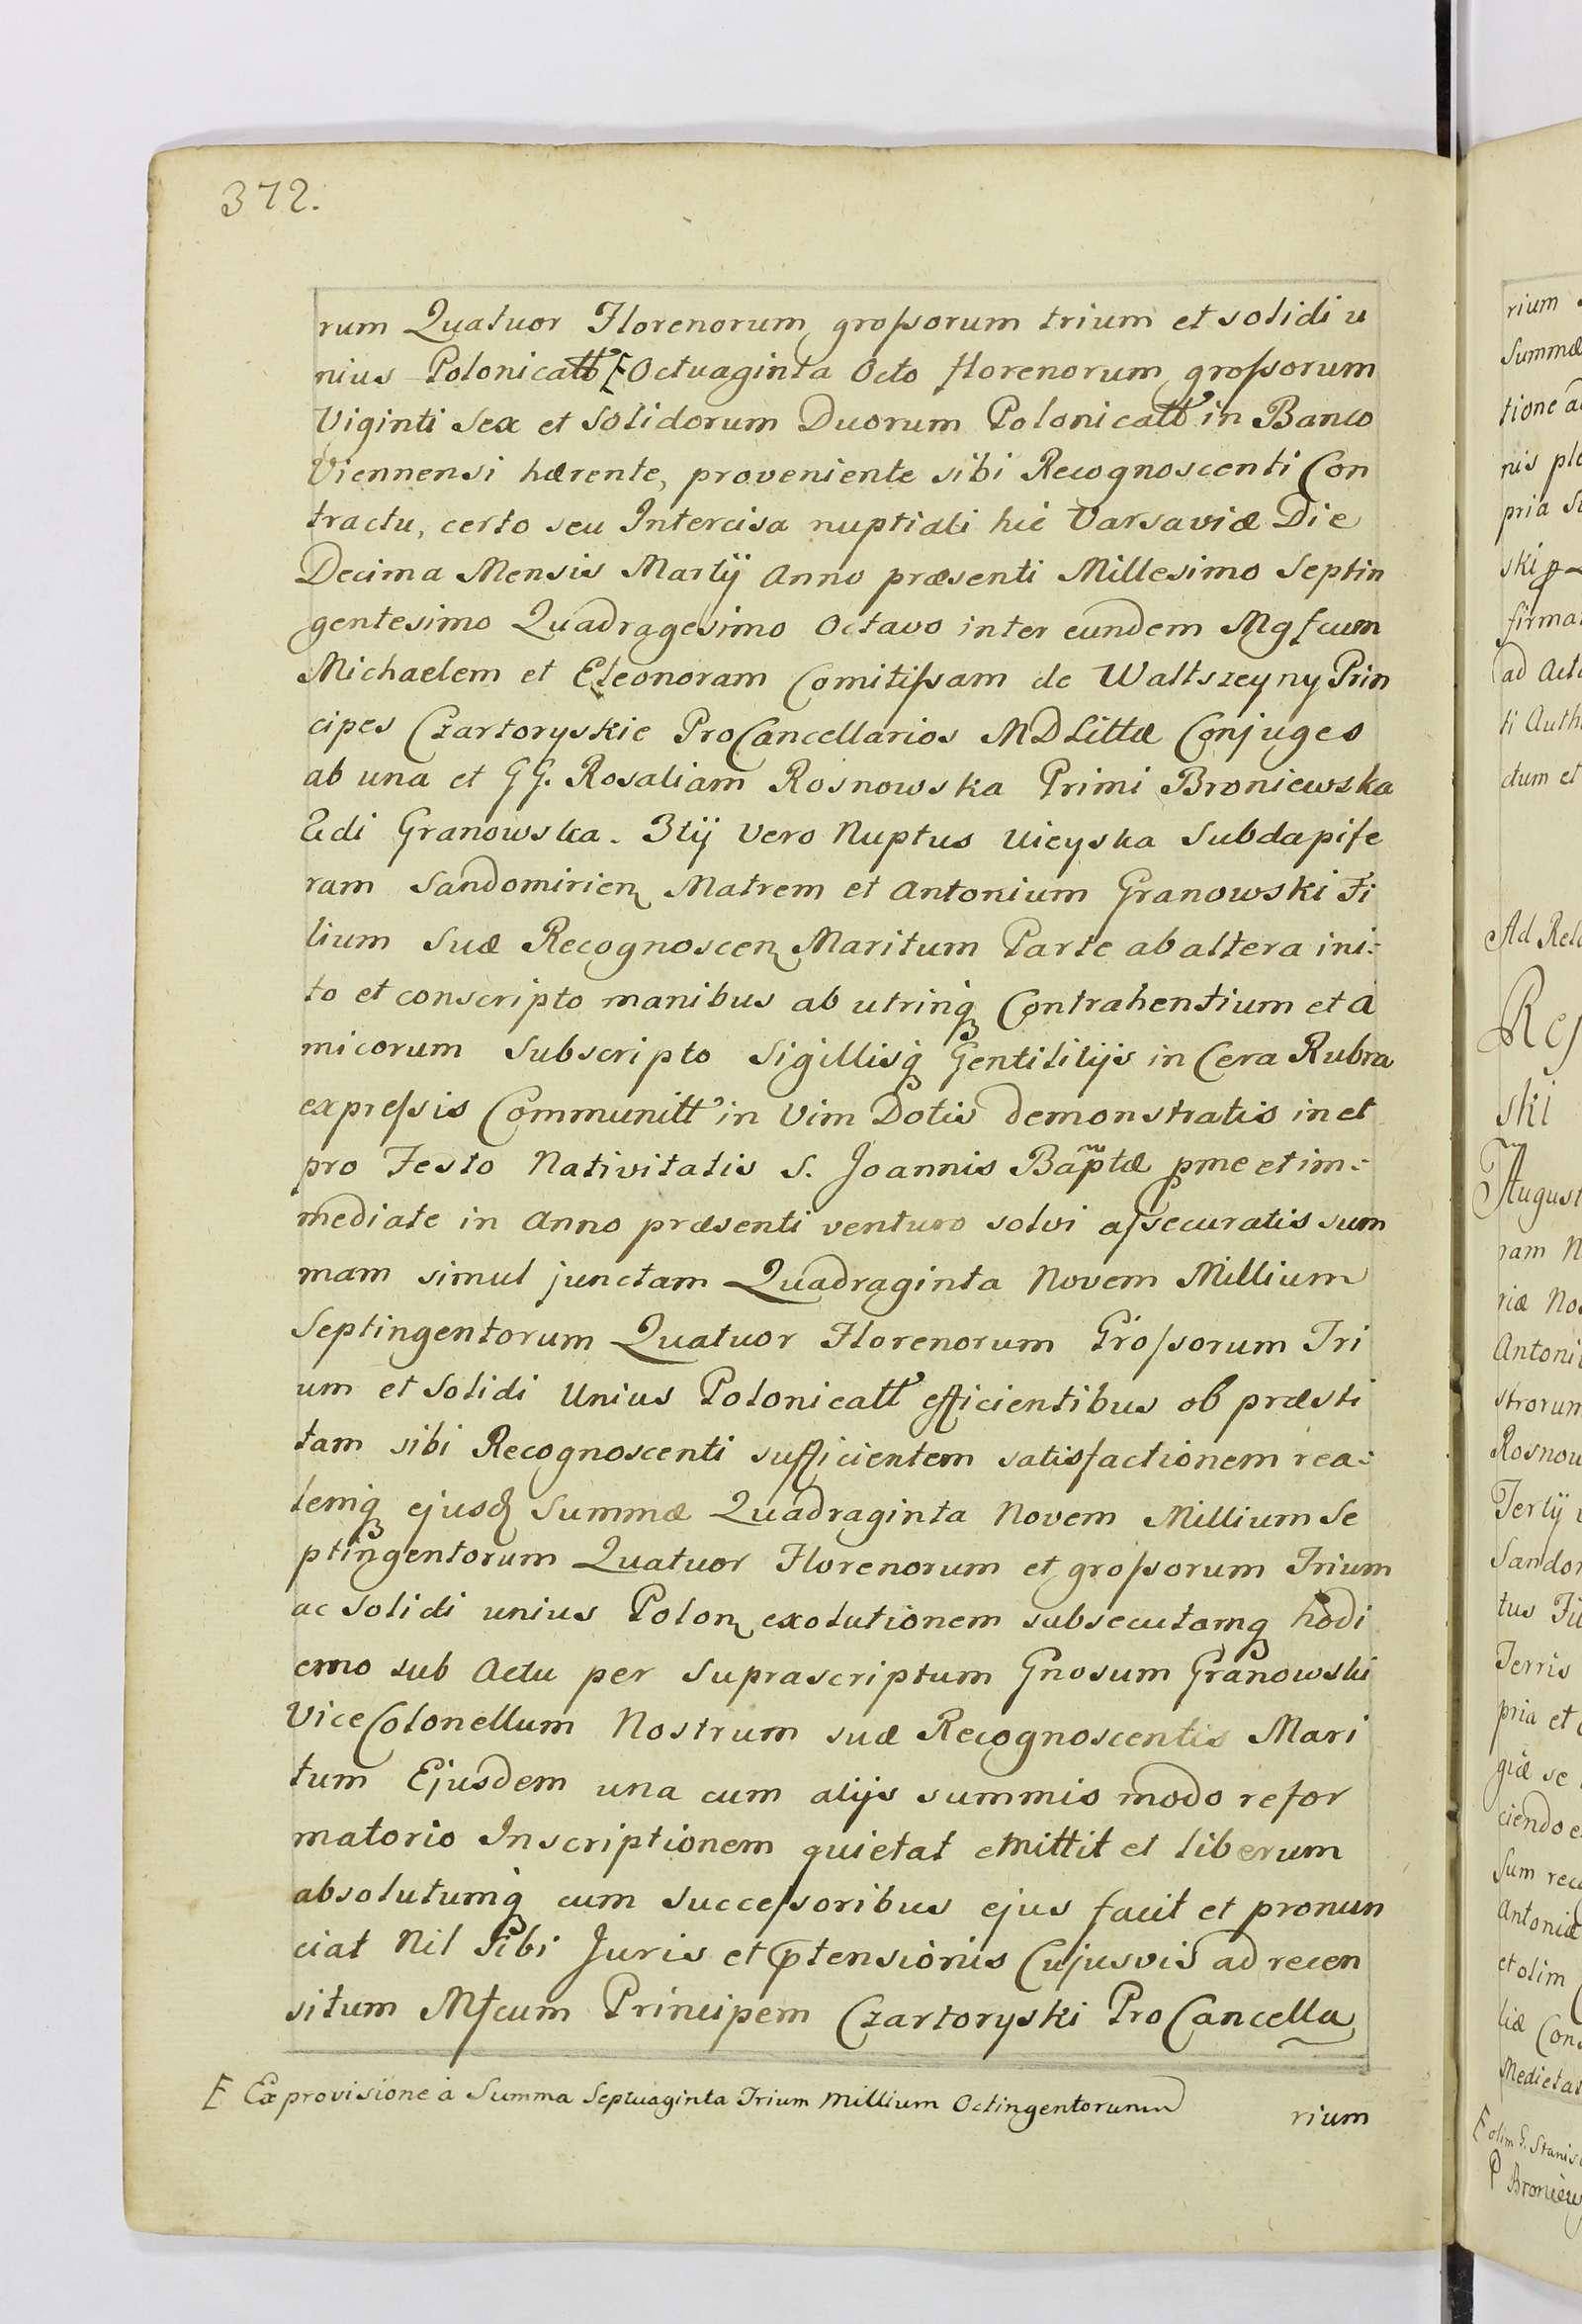 372.
rum Quatuor Florenorum, groſsorum trium et solidi u
nius Polonicatt E Octuaginta Octo florenorum, groſsorum
Viginti Sex et Solidorum Duorum Polonicatt in Banco
Viennensi hærente, proveniente sibi Recognoscenti Con
tractu, certo seu Intercisa nuptiali hic Varsaviæ Die
Decima Mensis Martij Anno præsenti Millesimo Septin
gentesimo Quadragesimo Octavo inter eundem Mgfcum
Michaelem et Eleonoram Comitiſsam de Waltszeyny Prin
cipes Czartoryskie ProCancellarios MDLittæ Conjuges
ab una et GG. Rosaliam Rosnowska Primi Broniewska
2di Granowska. 3tij Vero Nuptus Uieyska Subdapife
ram Sandomirien Matrem et Antonium Granowski Fi
lium Suæ Recognoscen Maritum Parte ab altera ini:
to et conscripto manibus ab utrinq Contrahentium et A
micorum Subscripto Sigillisq Gentilitijs in Cera Rubra
expreſsis Communitt in Vim Dotis demonstratis in et
pro Festo Nativitatis S. Joannis Baptæ pme et im:
mediate in Anno præsenti venturo solvi aſsecuratis sum
mam simul junctam Quadraginta Novem Millium
Septingentorum Quatuor Florenorum Groſsorum Tri
um et Solidi Unius Polonicatt efficientibus ob præsti
tam sibi Recognoscenti sufficientem satisfactionem rea:
lemq ejusd Summæ Quadraginta Novem Millium Se
ptingentorum Quatuor Florenorum et groſsorum Trium
ac Solidi unius Polon exolutionem subsecutamq hodi
erno sub Actu per Suprascriptum Gnosum Granowski
ViceColonellum Nostrum suæ Recognoscentis Mari
tum Ejusdem una cum alijs summis modo refor
matorio Inscriptionem quietat emittit et liberum
absolutumq cum Succeſsoribus ejus facit et pronun
ciat Nil Sibi Juris et Ptensionis Cujusvis ad recen
situm Mfcum Principem Czartoryski ProCancella
E Ex provisione à Summa Septuaginta Trium Millium Octingentorum
rium
rium
Summæ
tione
nis
pria
ski
firma
ad Acta
ti Auth
ctum et
Ad Rela
Res
ski
August
ram N
riæ No
Antoni
strorum
Rosnow
Tertij
Sandom
tus Fi
Terris
pria et
giæ se
ciendo e
Sum rec
Antoniæ
et olim
liæ Con
Medietat
E olim G. Stanis
P Broniew